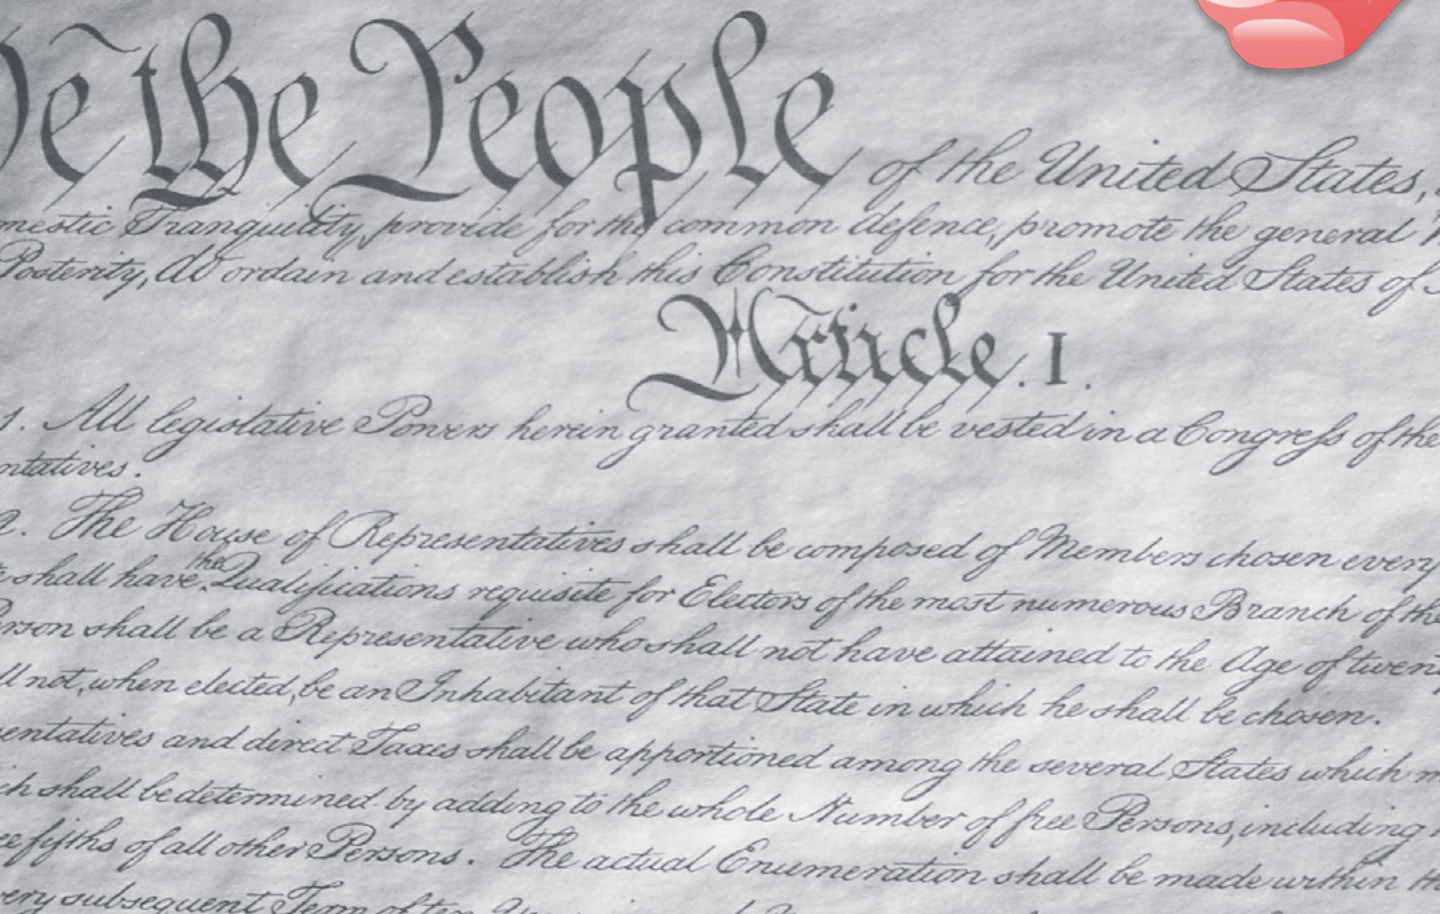 We the People of the United States,
mestic Tranquility, provide for the common defence, promote the general W
Posterity, do ordain and establish this Constitution for the United States of A
Article. I.
1. All legislative Powers herein granted shall be vested in a Congress of the
ntatives.
2. The House of Representatives shall be composed of Members chosen every
shall have the Qualifications requisite for Electors of the most numerous Branch of the
erson shall be a Representative who shall not have attained to the Age of twent
ll not, when elected, be an Inhabitant of that State in which he shall be chosen.
sentatives and direct Taxes shall be apportioned among the several States which m
ich shall be determined by adding to the whole Number of free Persons, including
ee fifths of all other Persons. The actual Enumeration shall be made within th
very subsequent Term of ten